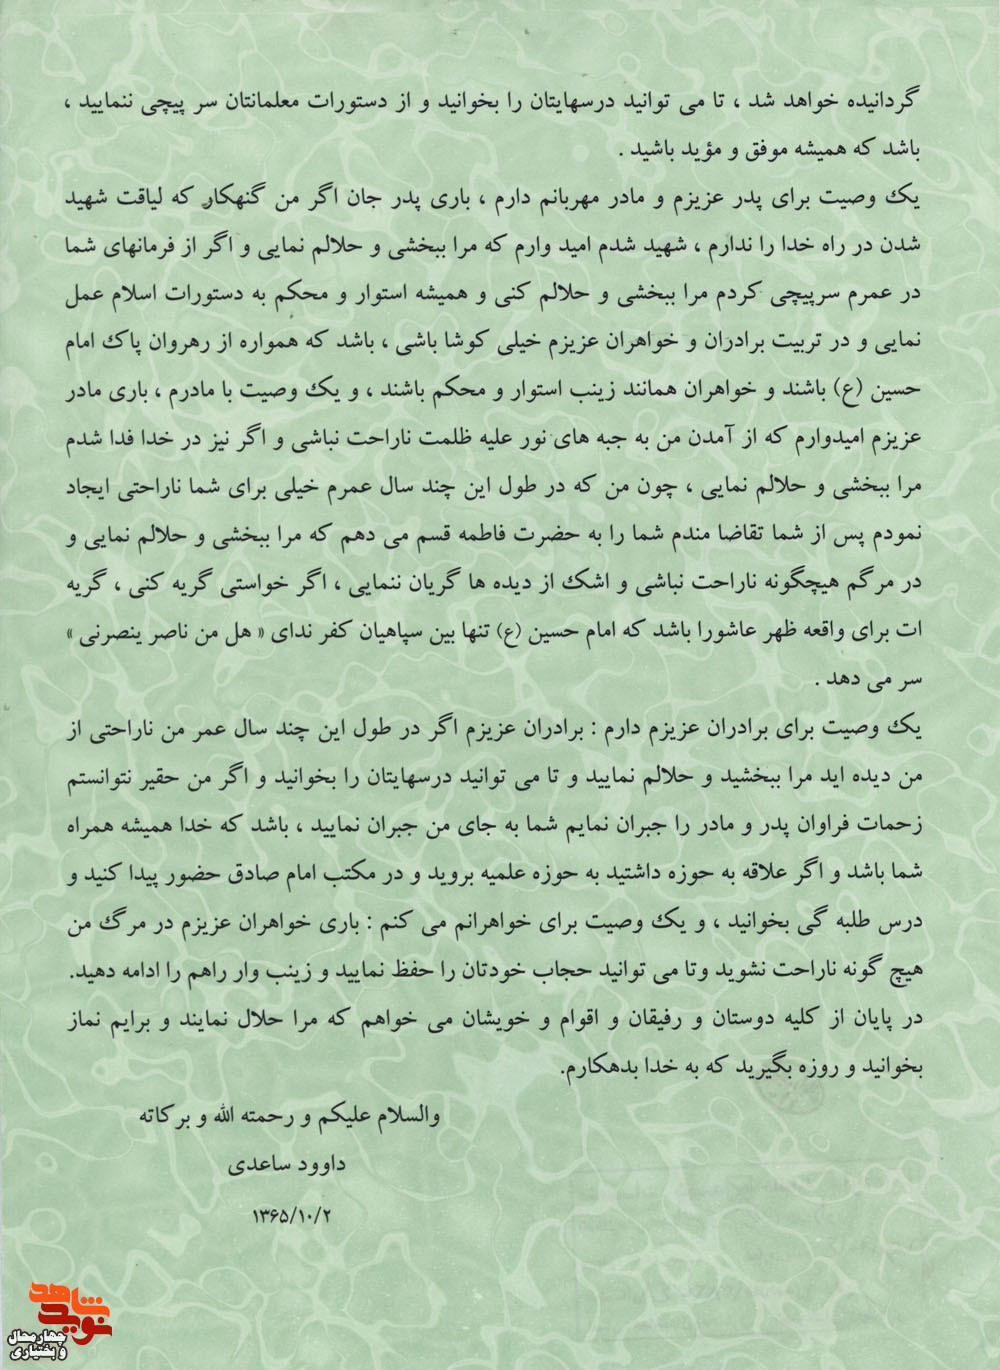 گردانیده خواهد شد ، تا می توانید درسهایتان را بخوانید و از دستورات معلمانتان سر پیچی ننمایید ،
باشد که همیشه موفق و مؤید باشید .
یک وصیت برای پدر عزیزم و مادر مهربانم دارم ، باری پدر جان اگر من گنهکار که لیاقت شهید
شدن در راه خدا را ندارم ، شهید شدم امید وارم که مرا ببخشی و حلالم نمایی و اگر از فرمانهای شما
در عمرم سرپیچی کردم مرا ببخشی و حلالم کنی و همیشه استوار و محکم به دستورات اسلام عمل
نمایی و در تربیت برادران و خواهران عزیزم خیلی کوشا باشی ، باشد که همواره از رهروان پاک امام
حسین (ع) باشند و خواهران همانند زینب استوار و محکم باشند ، و یک وصیت با مادرم ، باری مادر
عزیزم امیدوارم که از آمدن من به جبه های نور علیه ظلمت ناراحت نباشی و اگر نیز در خدا فدا شدم
مرا ببخشی و حلالم نمایی ، چون من که در طول این چند سال عمرم خیلی برای شما ناراحتی ایجاد
نمودم پس از شما تقاضا مندم شما را به حضرت فاطمه قسم می دهم که مرا ببخشی و حلالم نمایی و
در مرگم هیچگونه ناراحت نباشی و اشک از دیده ها گریان ننمایی ، اگر خواستی گریه کنی ، گریه
ات برای واقعه ظهر عاشورا باشد که امام حسین (ع) تنها بین سپاهیان کفر ندای « هل من ناصر ینصرنی »
سر می دهد .
یک وصیت برای برادران عزیزم دارم : برادران عزیزم اگر در طول این چند سال عمر من ناراحتی از
من دیده اید مرا ببخشید و حلالم نمایید و تا می توانید درسهایتان را بخوانید و اگر من حقیر نتوانستم
زحمات فراوان پدر و مادر را جبران نمایم شما به جای من جبران نمایید ، باشد که خدا همیشه همراه
شما باشد و اگر علاقه به حوزه داشتید به حوزه علمیه بروید و در مکتب امام صادق حضور پیدا کنید و
درس طلبه گی بخوانید ، و یک وصیت برای خواهرانم می کنم : باری خواهران عزیزم در مرگ من
هیچ گونه ناراحت نشوید وتا می توانید حجاب خودتان را حفظ نمایید و زینب وار راهم را ادامه دهید.
در پایان از کلیه دوستان و رفیقان و اقوام و خویشان می خواهم که مرا حلال نمایند و برایم نماز
بخوانید و روزه بگیرید که به خدا بدهکارم.
والسلام علیکم و رحمته الله و برکاته
داوود ساعدی
۱۳۶۵/۱۰/۲
نوید شاهد
چهارمحال
و بختیاری